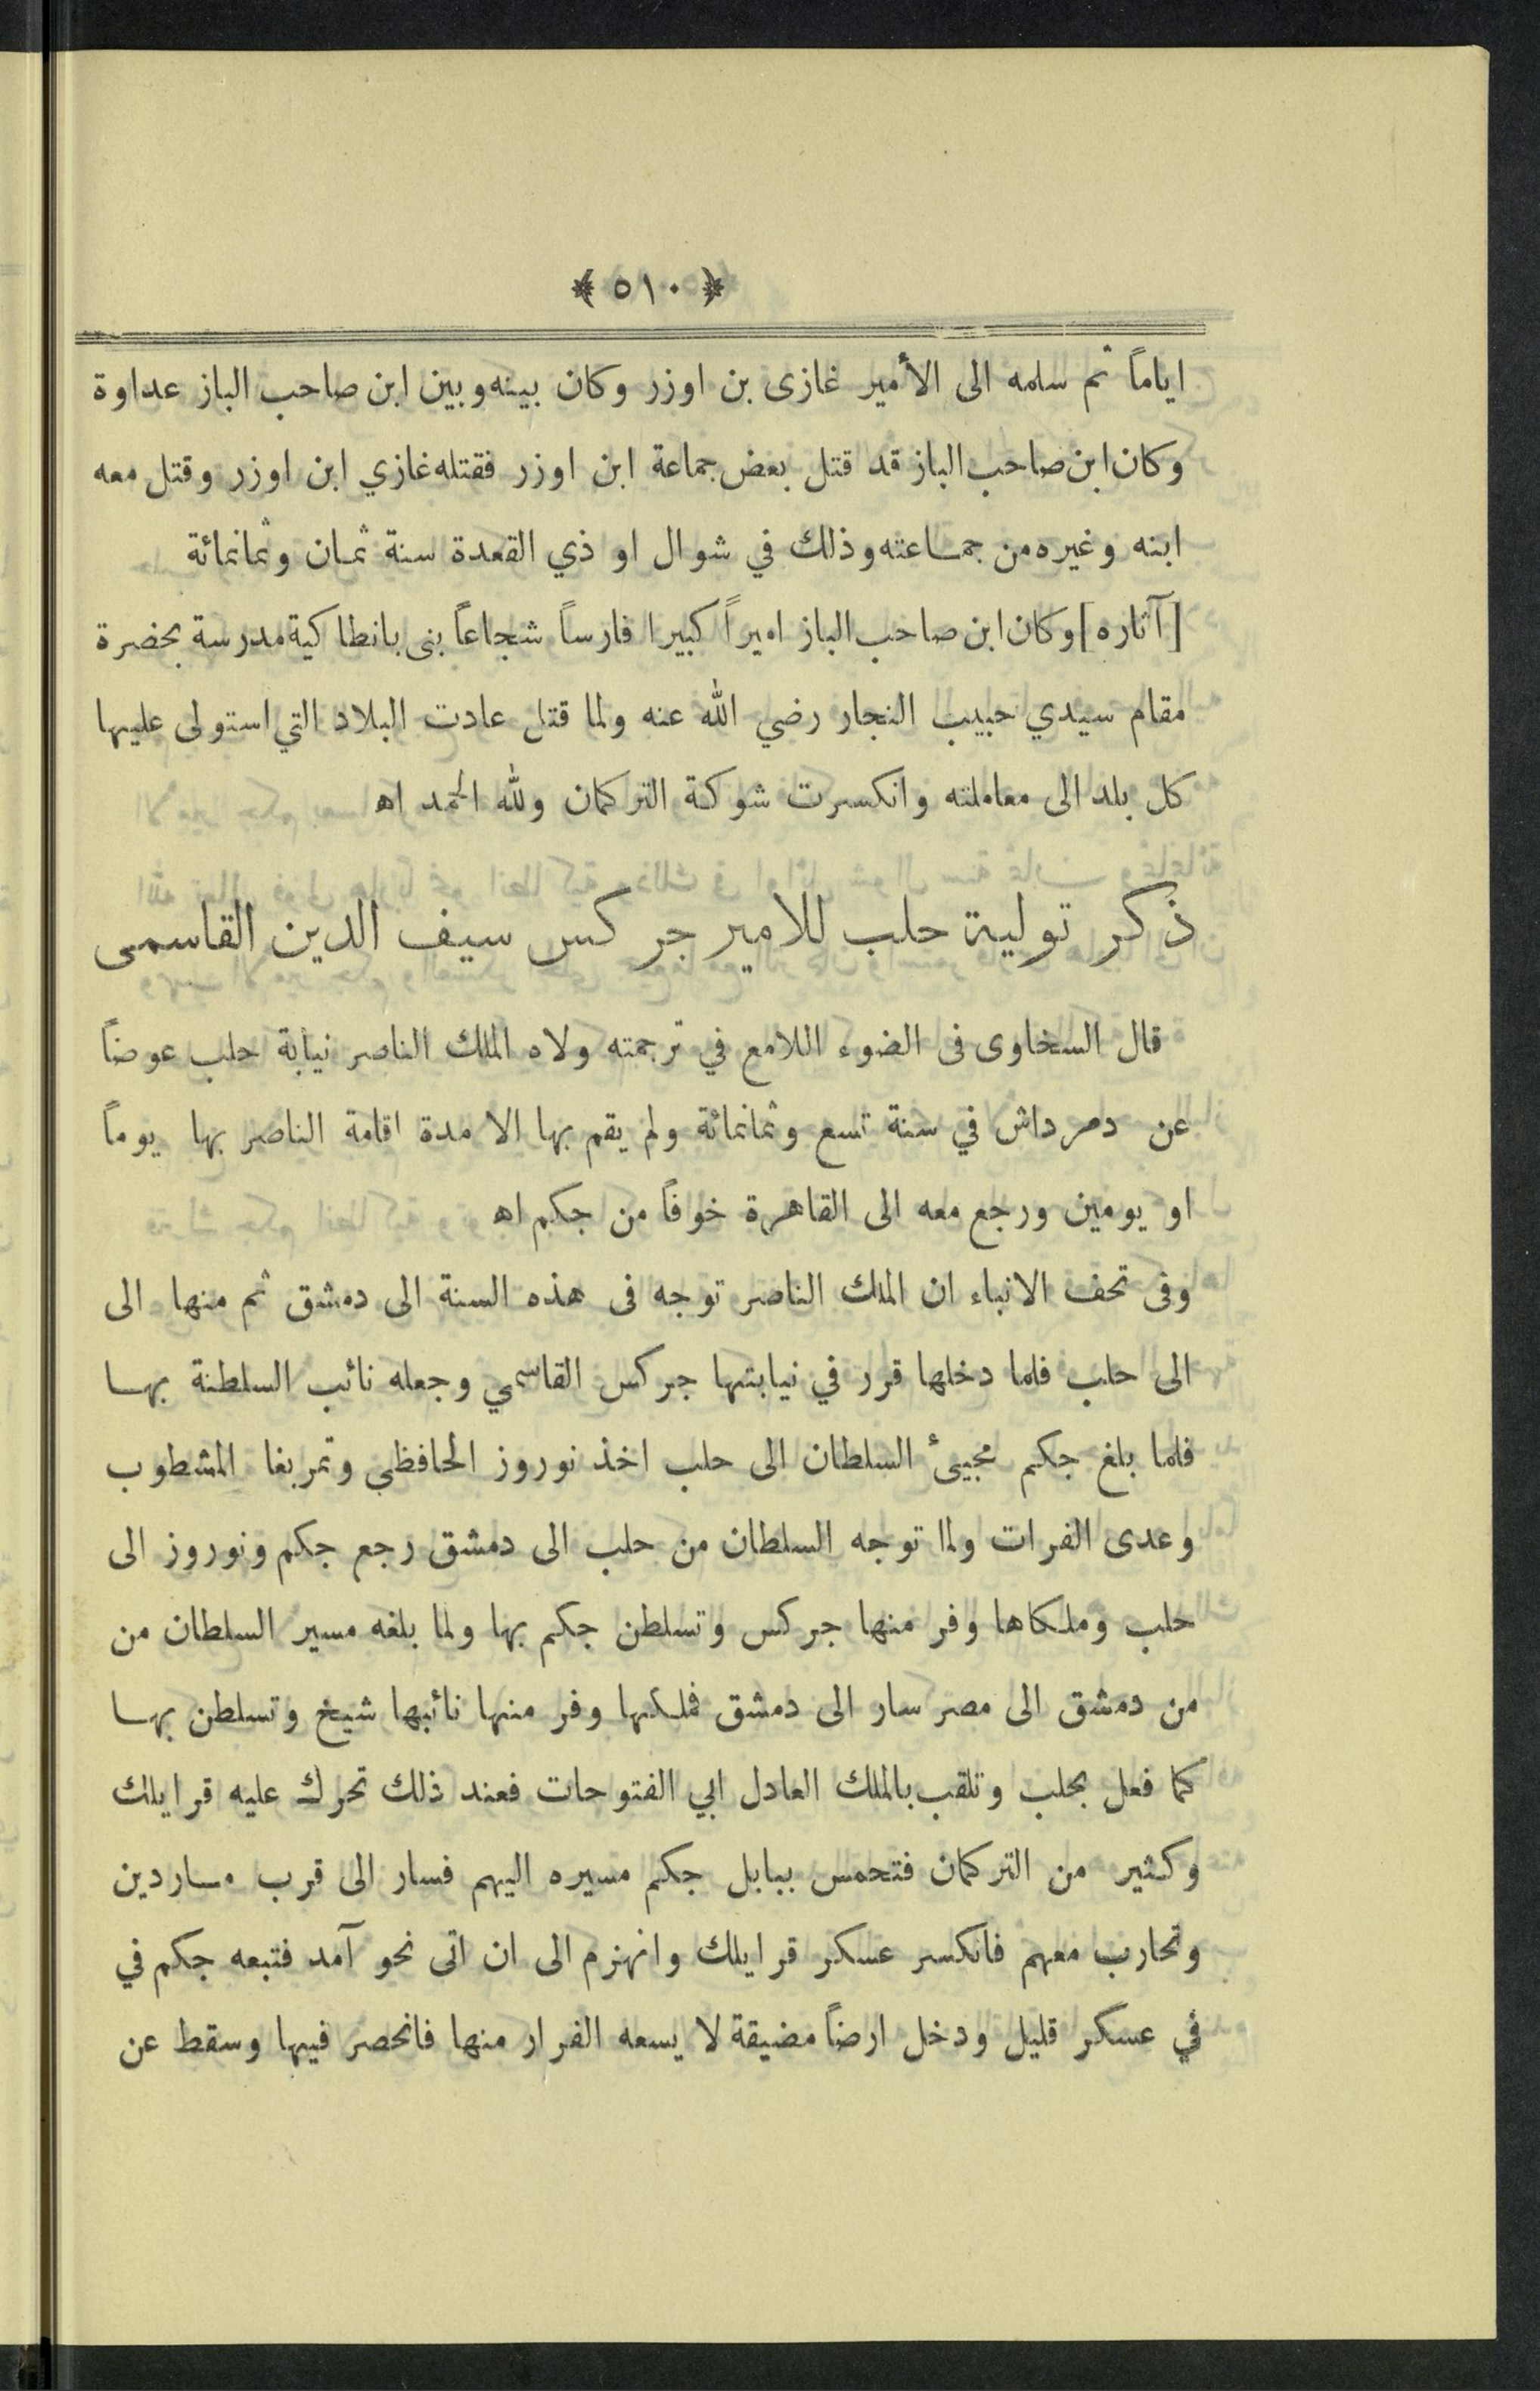 ﴿ ٥١٠ ﴾
اياماً ثم سلمه الى الأمير غازى بن اوزر وكان بينه وبين ابن صاحب الباز عداوة
وكان ابن صاحب الباز قد قتل بعض جماعة ابن اوزر فقتله غازي ابن اوزر وقتل معه
ابنه وغيره من جماعته وذلك في شوال او ذي القعدة سنة ثمان وثمانمائة
[آثاره] وكان ابن صاحب الباز اميراً كبيرا فارساً شجاعاً بنى بانطاكية مدرسة بحضرة
مقام سيدي حبيب النجار رضي الله عنه ولما قتل عادت البلاد التي استولى عليها
كل بلد الى معاملته وانكسرت شوكة التركمان ولله الحمد اه
ذكر تولية حلب للامير جركس سيف الدين القاسمى
قال السخاوى فى الضوء اللامع في ترجمته ولاه الملك الناصر نيابة حلب عوضاً
عن دمرداش في سنة تسع وثمانمائة ولم يقم بها الا مدة اقامة الناصر بها يوماً
او يومين ورجع معه الى القاهرة خوفاً من جكم اه
وفى تحف الانباء ان الملك الناصر توجه فى هذه السنة الى دمشق ثم منها الى
الى حلب فلما دخلها قرر في نيابتها جركس القاسمي وجعله نائب السلطنة بها
فلما بلغ جكم مجيئ السلطان الى حلب اخذ نوروز الحافظي وتمربغا المشطوب
وعدى الفرات ولما توجه السلطان من حلب الى دمشق رجع جكم ونوروز الى
حلب وملكاها وفر منها جركس وتسلطن جكم بها ولما بلغه مسير السلطان من
من دمشق الى مصر سار الى دمشق فملكها وفر منها نائبها شيخ وتسلطن بها
كما فعل بحلب وتلقب بالملك العادل ابي الفتوحات فعند ذلك تحرك عليه قرايلك
وكثير من التركمان فتحمس ببابل جكم مسيره اليهم فسار الى قرب ماردين
وتحارب معهم فانكسر عسكر قرايلك وانهزم الى ان اتى نحو آمد فتبعه جكم في
في عسكر قليل ودخل ارضاً مضيقة لا يسعه الفرار منها فانحصر فيها وسقط عن